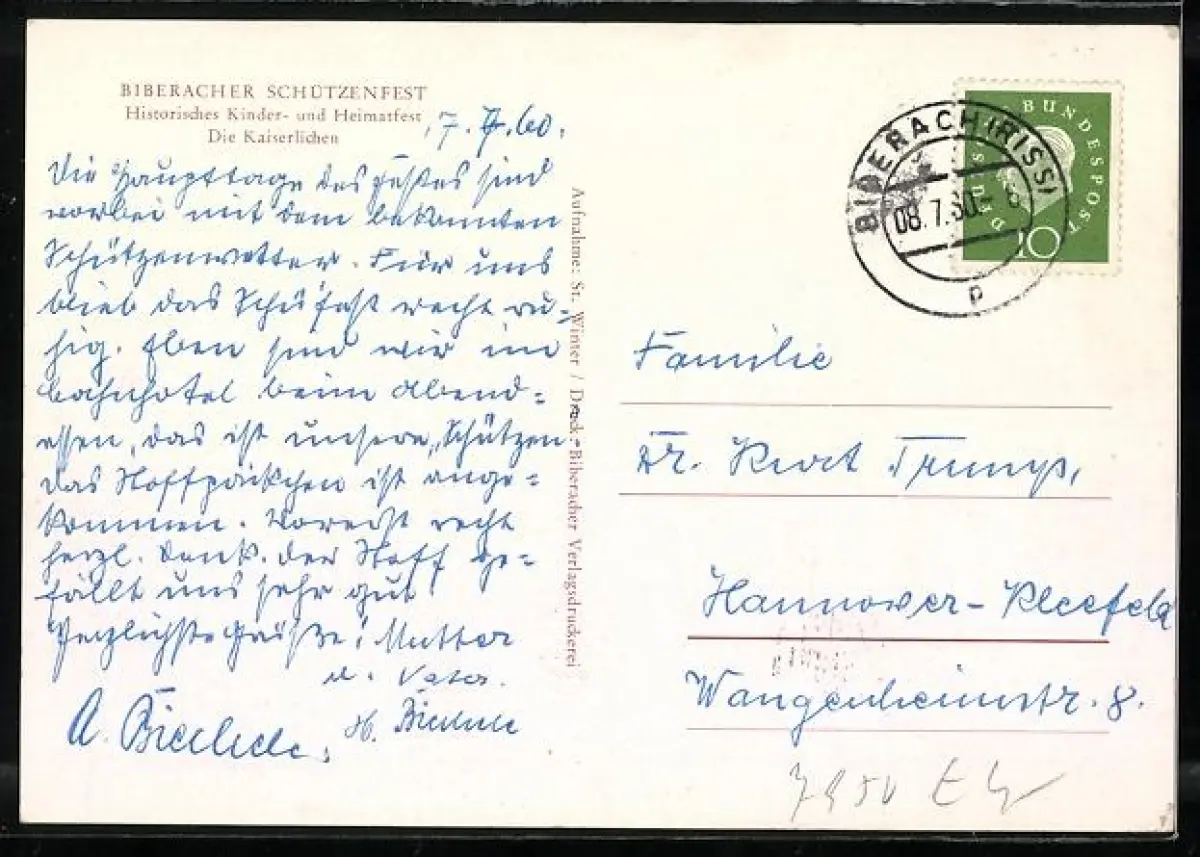 BIBERACHER SCHÜTZENFEST
Historisches Kinder- und Heimatfest
Die Kaiserlichen
7. 7. 60.
Die Haupttage des Festes sind
vorbei mit dem bekannten
Schützenwetter. Für uns
blieb das Schüfest recht ru-
hig. Eben sind wir im
Bahnhotel beim Abend=
essen, das ist unsere „Schützen
das Stoffpäckchen ist ange=
kommen. Vorerst recht
herzl. Dank. Der Stoff ge=
fällt uns sehr gut
Herzlichste Grüße! Mutter
u. Vater.
A.
H.
Aufnahme: St. Winter / Druck: Biberacher Verlagsdruckerei
BIBERACH (RISS)
08.7.60
p
DEUTSCHE BUNDESPOST
10
Familie
Dr. Kurt Trump,
Hannover-Kleefeld
Wangenheimstr. 8.